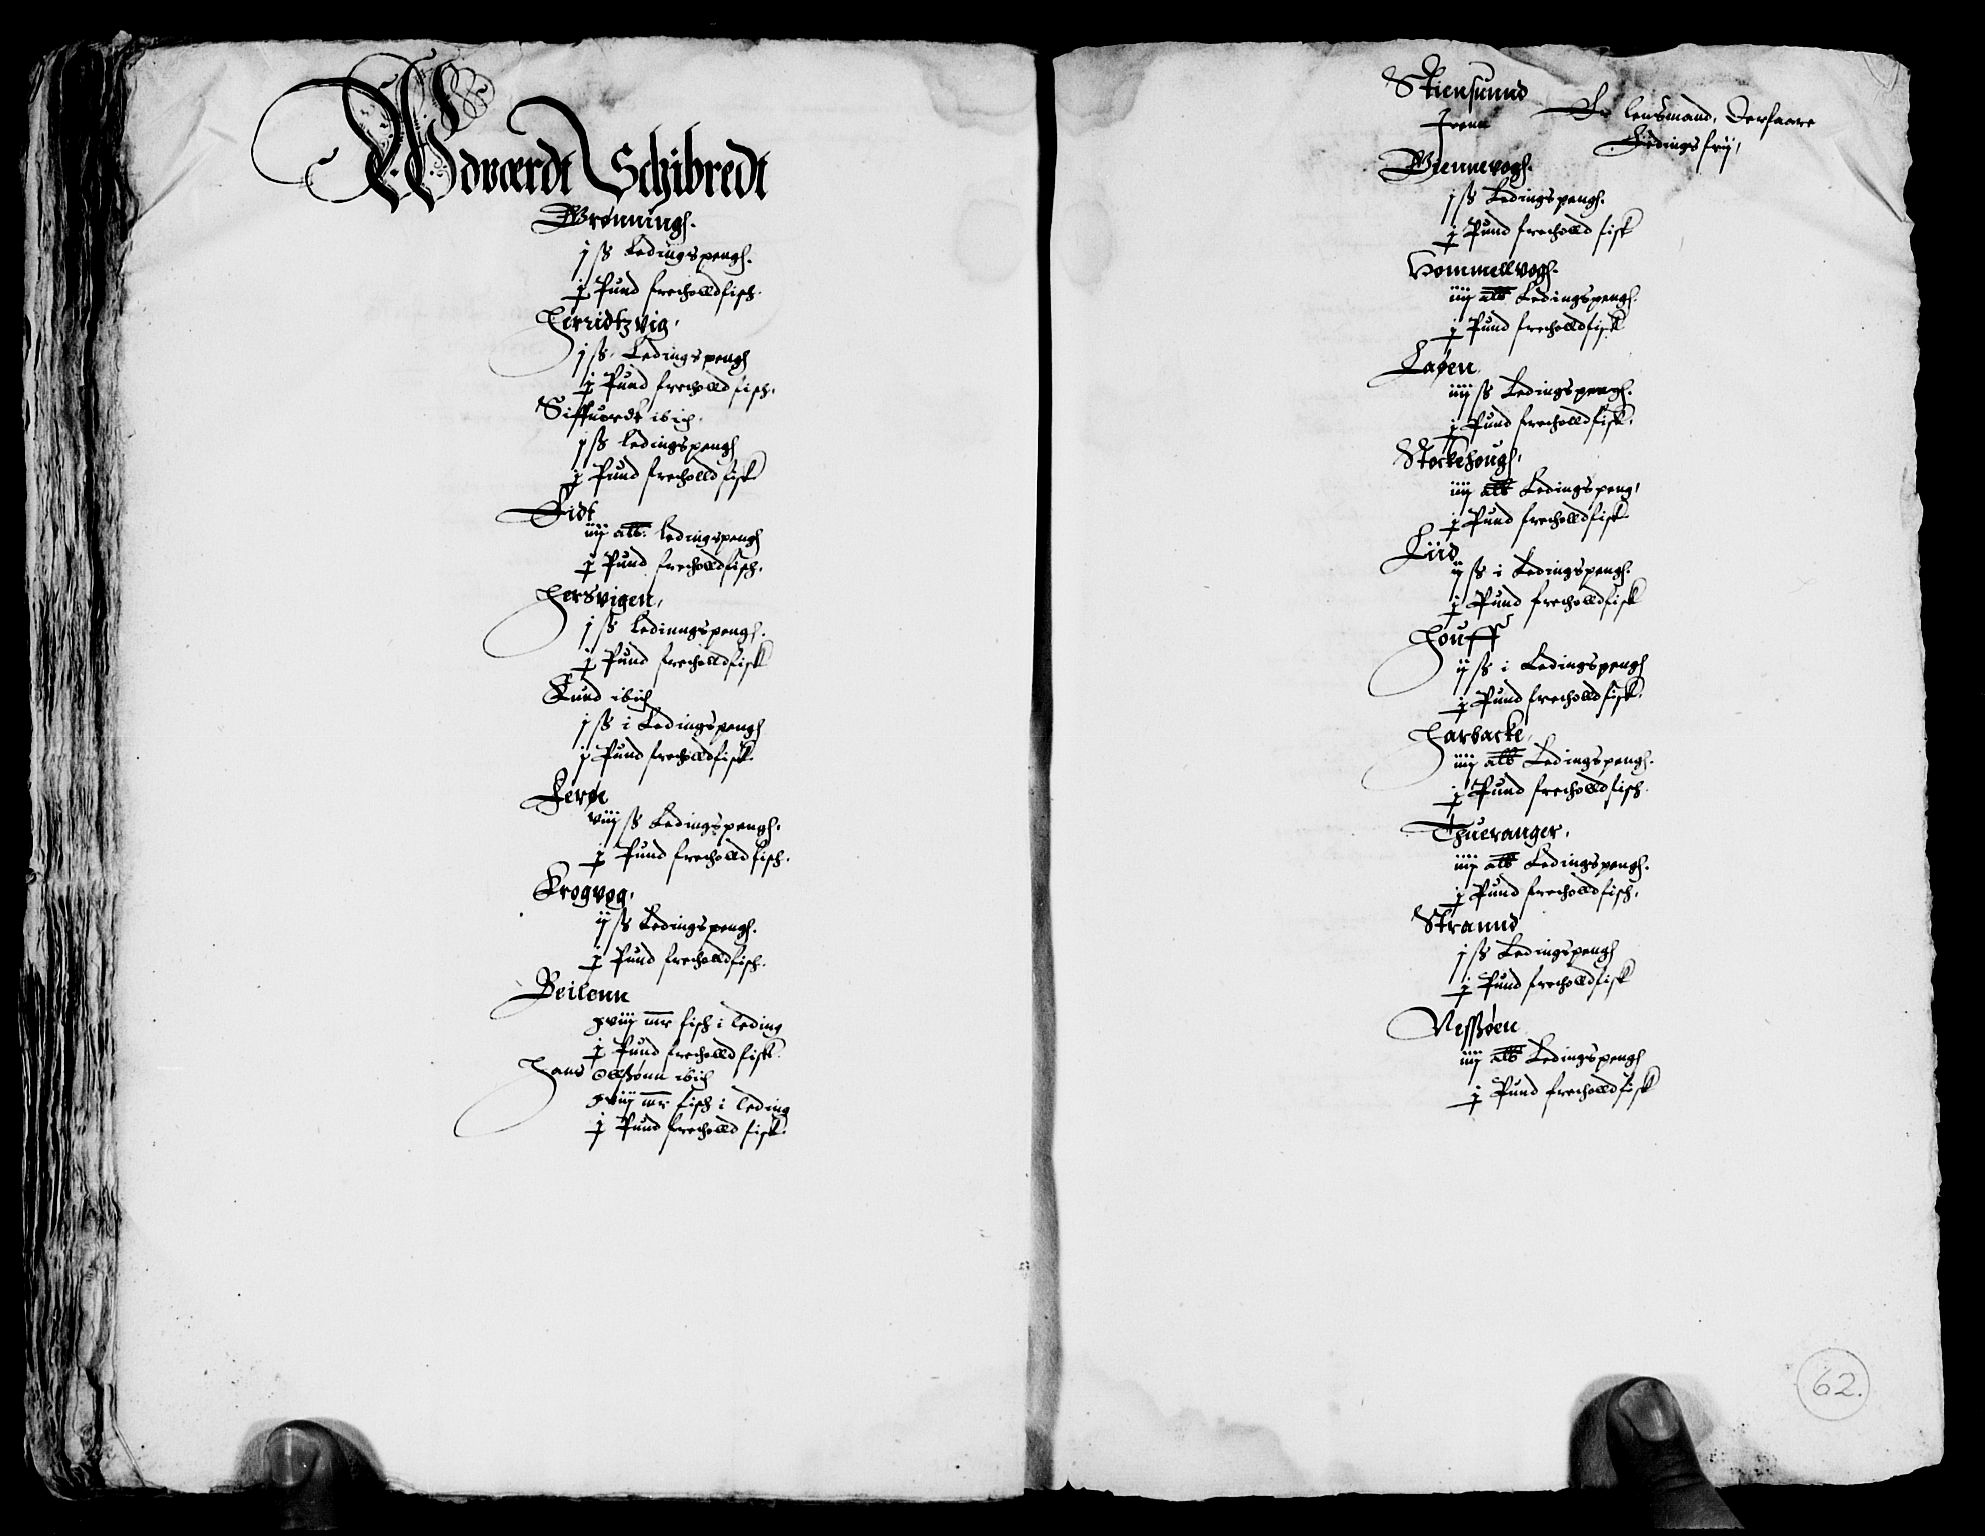 Wdværdt Schibredt
Grønningh.
j ß Ledingspengh.
j Pund frecholldfisch.
Herridtzvig,
j ß. Ledingspengh
j Pund frecholldfisch.
Siffuerdt ibid.
j ß ledingspengh
j Pund frecholld fisk
Lidt
iiij alb. ledingspengh
j Pund frecholldfisch.
Hersvigen,
j ß Ledinngspengh.
j Pund frecholldfisk
Knud ibid
j ß i Ledingspengh
j Pund frecholldfisk.
Lerøe
viij ß Ledingspengh.
j Pund frecholld fisch.
Krogvog,
ij ß Ledingspengh.
j Pund frecholldfisch.
Beilenn
xviij mr fisch i leding
j Pund frecholld fisk.
Hans Ollßønn ibid
xviij mr fisch i leding
j Pund frecholld fisk.
Stiensunnd
Er lensmand, derfaare
Ledings frij,
Giennevogh.
j ß Ledingspengh.
j Pund frecholld fisk
Hommellvogh.
iiij alb Ledingspengh.
j Pund frecholldfisk
Laøen
iiij ß Ledingspengh.
j Pund frecholldfisk.
Stockehough,
iiij alb Ledingspeng,
j Pund frecholldfisk
Liid
ij ß i Ledingspengh.
j Pund frecholldfisk
Houff
ij ß i Ledingspengh
j Pund frecholldfisk.
Harbacke,
iiij alb Ledingspengh.
j Pund frecholld fisch.
Thueranger,
iiij alb Ledingspengh.
j Pund frecholldfisch.
Strannd
j ß Ledingspengh
j Pund frecholldfisk
Nessøen
iiij alb Ledingspengh
j Pund frecholldfisk
62.